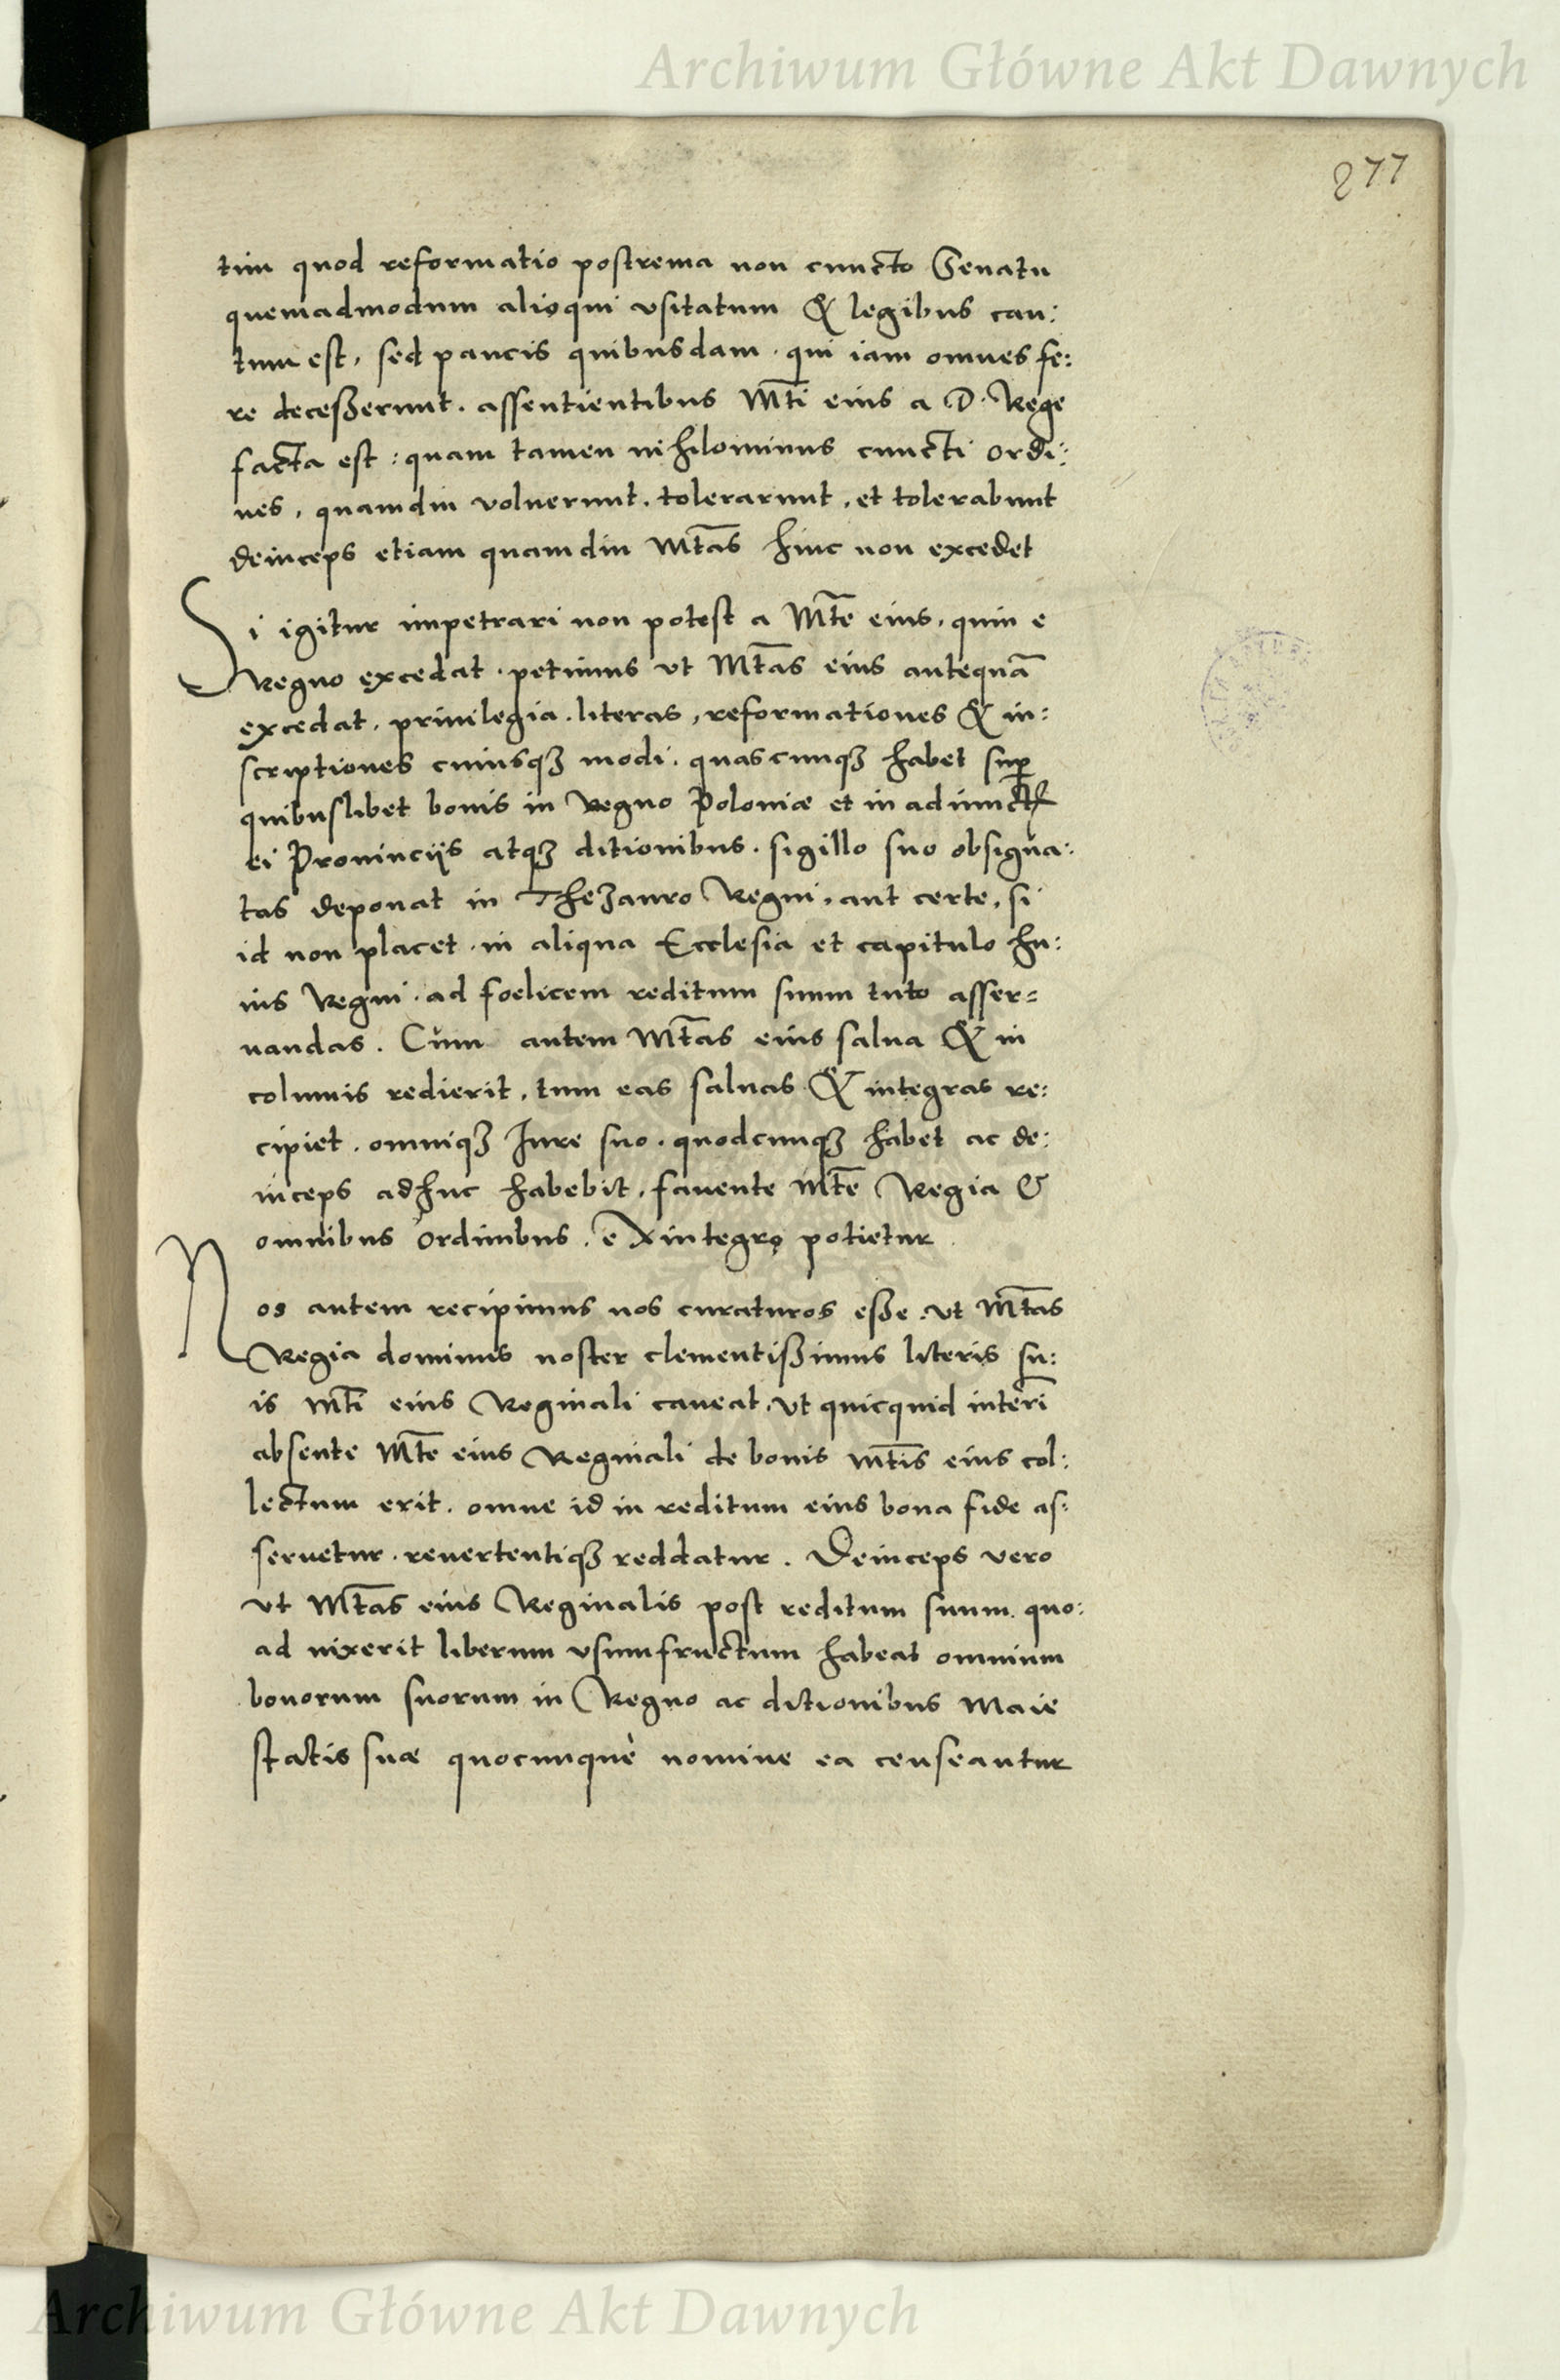 Archiwum Główne Akt Dawnych
277
tim quod reformatio postrema non cuncto Senatu
quemadmodum alioqui vsitatum & legibus cau:
tum est, sed paucis quibusdam. qui iam omnes fe:
re deceßerunt. assentientibus Mti eius a D. Rege
facta est: quam tamen nihilominus cuncti ordi:
nes, quamdiu voluerunt. tolerarunt, et tolerabunt
deinceps etiam quamdiu Mtas hinc non excedet
Si igitur impetrari non potest a Mte eius, quin e
Regno excedat. petimus vt Mtas eius antequā
excedat, priuilegia. literas, reformationes & in:
scriptiones cuiusqʒ modi. quascunqʒ habet suꝑ
quibuslibet bonis in Regno Poloniæ et in adiunctꝭ
ei Prouincijs atqʒ ditionibus. sigillo suo obsigna:
tas deponat in Thezauro Regni, aut certe, si
id non placet. in aliqua Ecclesia et capitulo hu:
ius Regni. ad foelicem reditum suum tuto asser=
uandas. Cum autem Mtas eius salua & in
columis redierit, tum eas saluas & integras re:
cipiet. omniqʒ Iure suo. quodcunqʒ habet ac de:
inceps adhuc habebit, fauente Mte Regia &
omnibus ordinibus. ex integro potietur.
Nos autem recipimus nos curaturos eße. vt Mtas
Regia dominus noster clementißimus literis su:
is Mti eius Reginali caueat, vt quicquid interī
absente Mte eius Reginali de bonis Mtis eius col:
lectum erit. omne id in reditum eius bona fide as:
seruetur. reuertentiqʒ reddatur. Deinceps vero
vt Mtas eius Reginalis post reditum suum. quo:
ad uixerit liberum vsumfructum habeat omnium
bonorum suorum in Regno ac ditionibus Maie
statis suæ quocunque nomine ea censeantur
Archiwum Główne Akt Dawnych